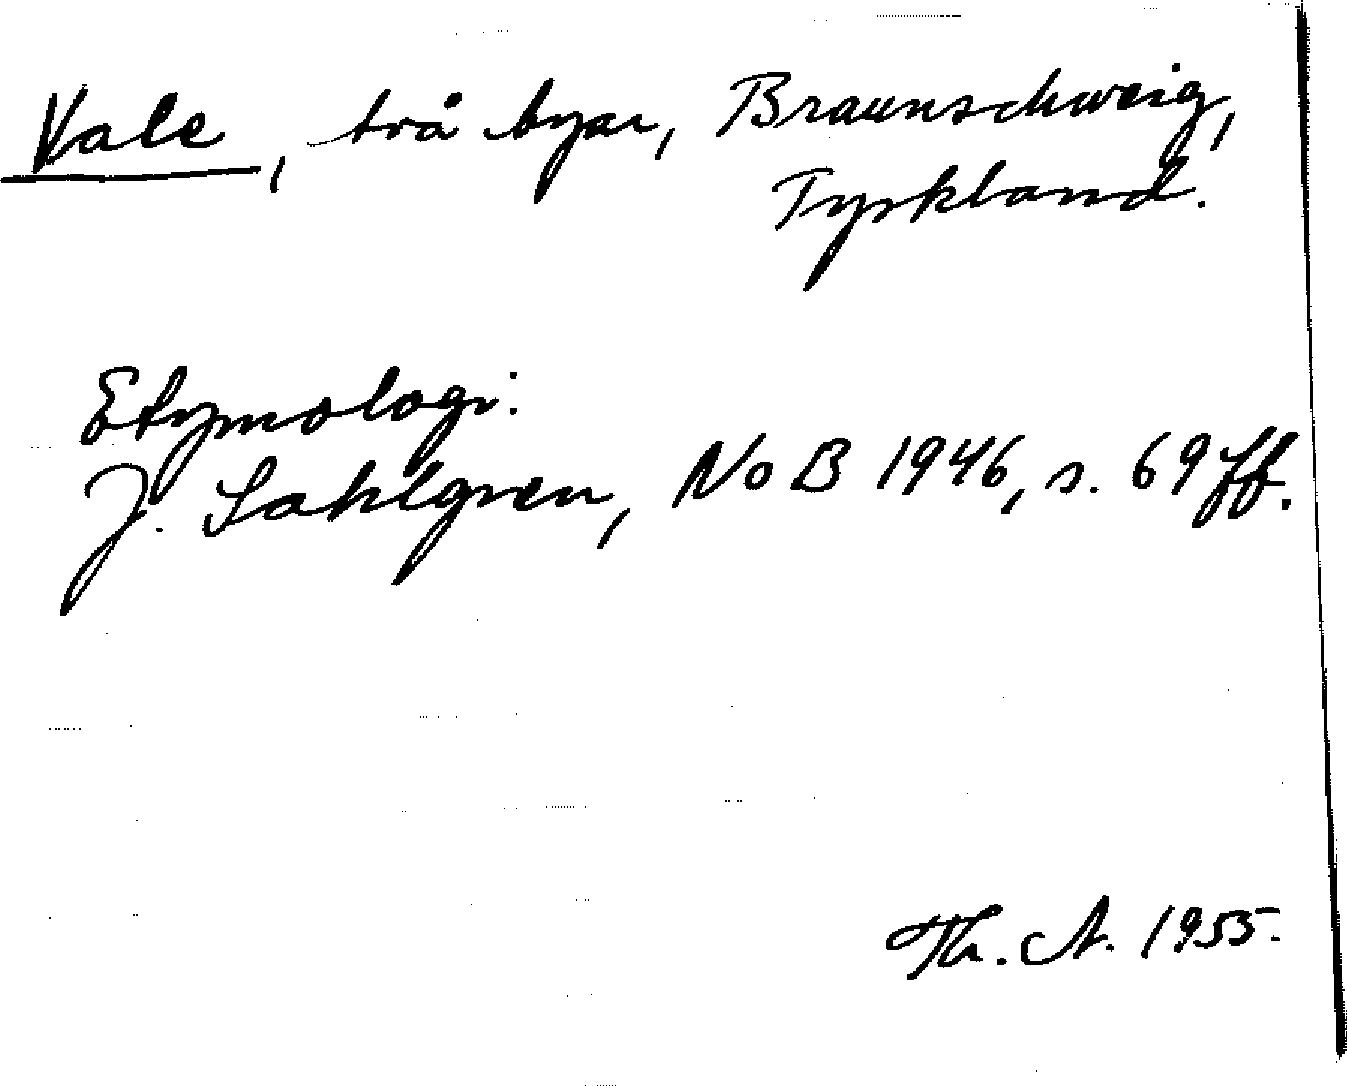 Vale, två byar, Braunschweig,
Tyskland.
Etymologi:
J. Sahlgren, NoB 1946, s. 69 ff.
Th. A. 1955.